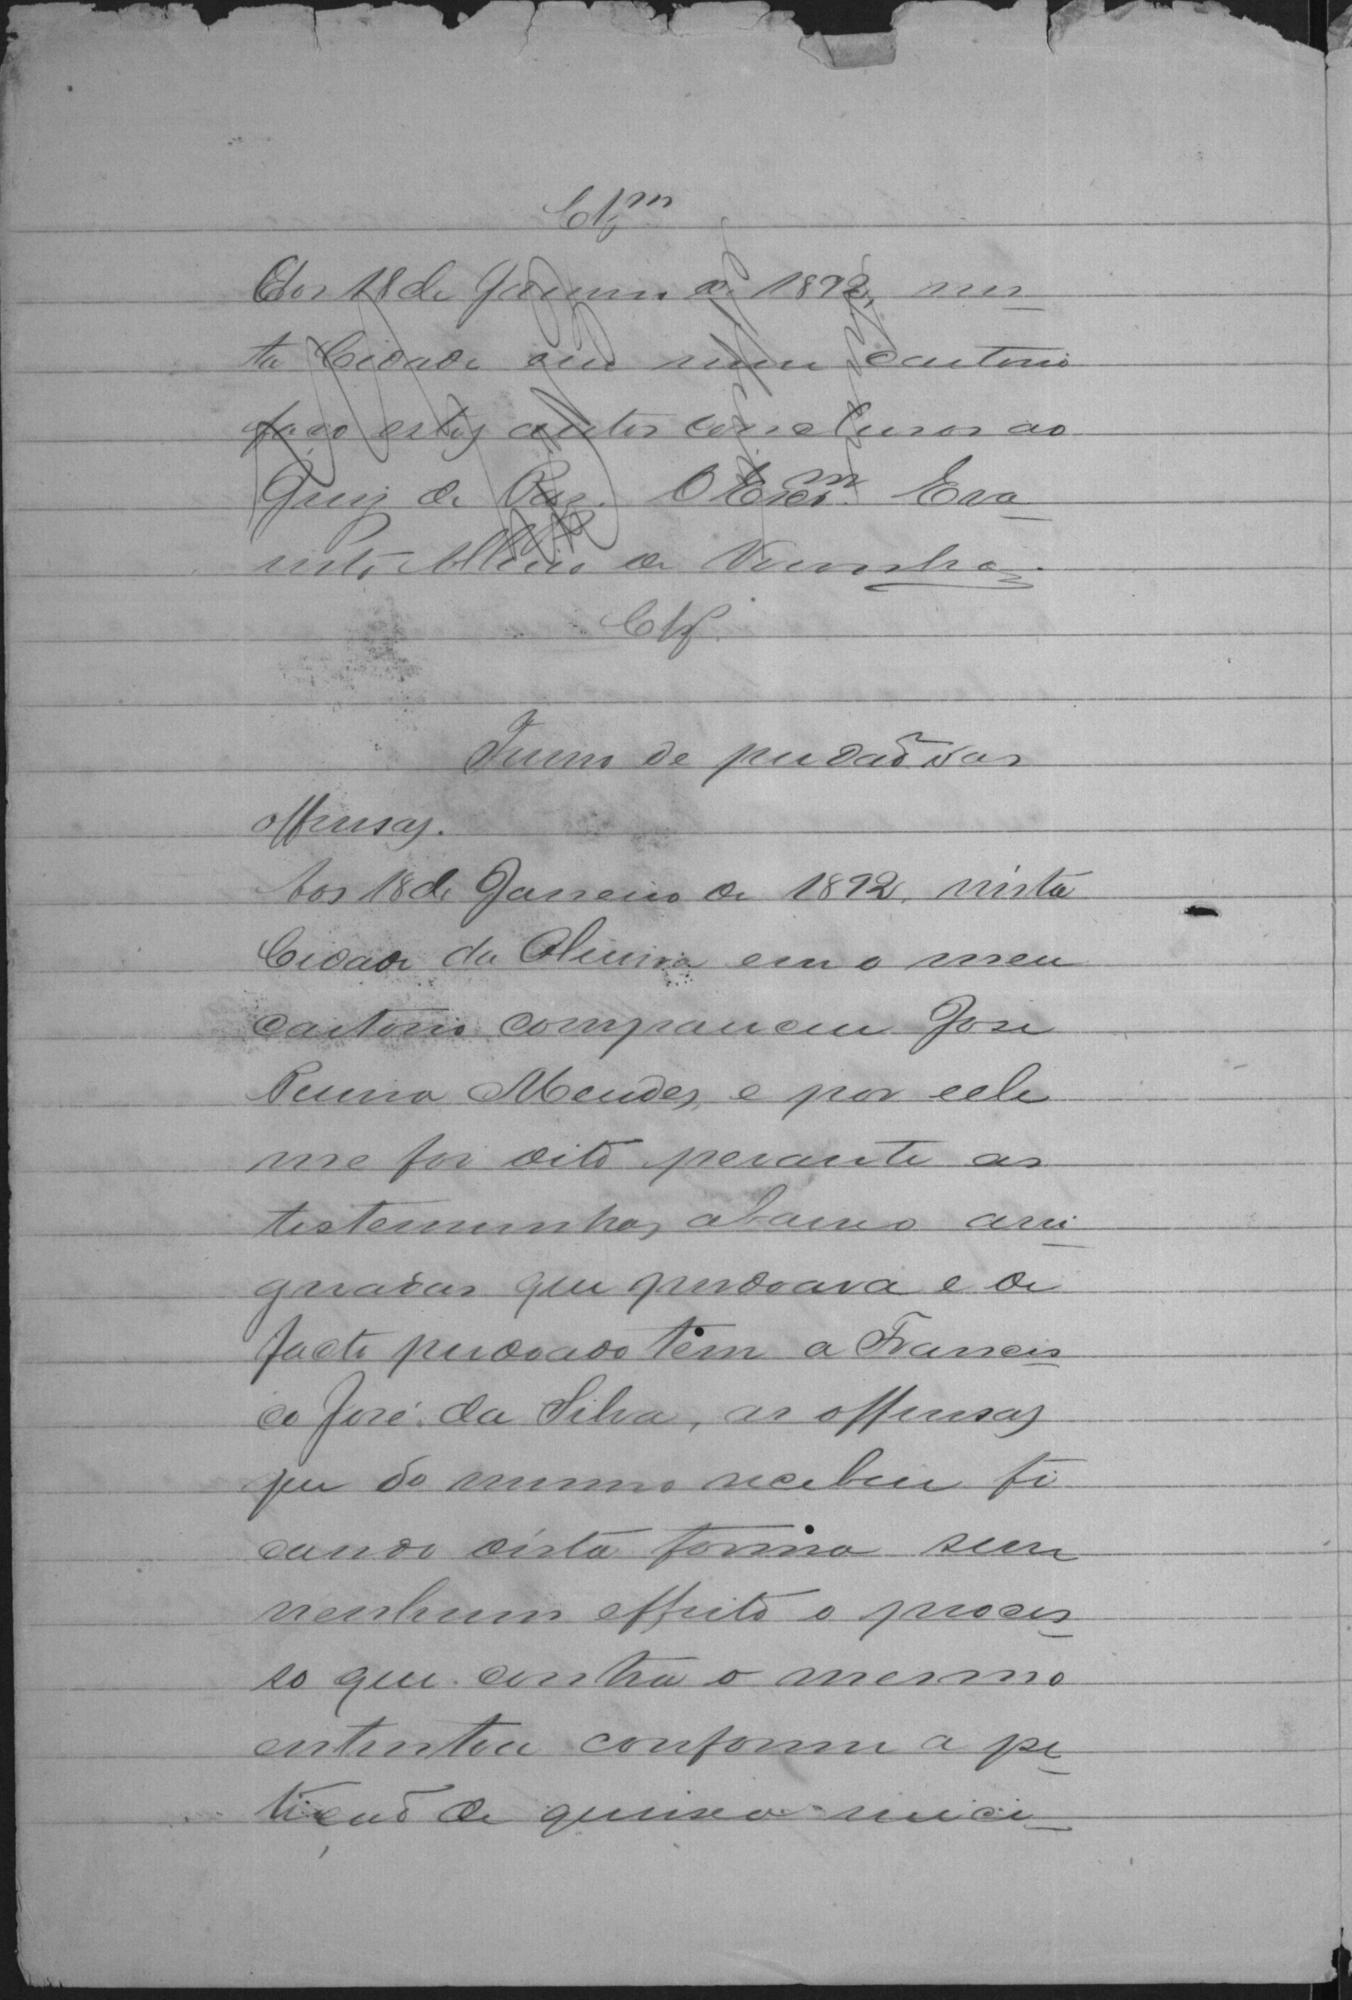 Clzm
Aos 18 de Janeiro de 1892, nes-
ta Cidade em meu cartorio
faço estes autos conclusos ao
Juiz de Paz. O Escm. Eva-
risto de Noronha
Clz.
Termo de perdaõ das
offensas.
Aos 18 de Janeiro de 1892, nésta
Cidade da Oliveira em o meu
cartorio compareceu Jose
Pereira Mendes, e por elle
me foi dito perante as
testemunhas abaixo assi-
gnadas que perdoava e de
facto perdoado tem a Francis-
co José da Silva, as offensas
que do mesmo recebeu fi
cando désta forma sem
nenhum effeito o proces-
so que contra o mesmo
intentou conforme a pe-
tiçaõ de queixa inici-